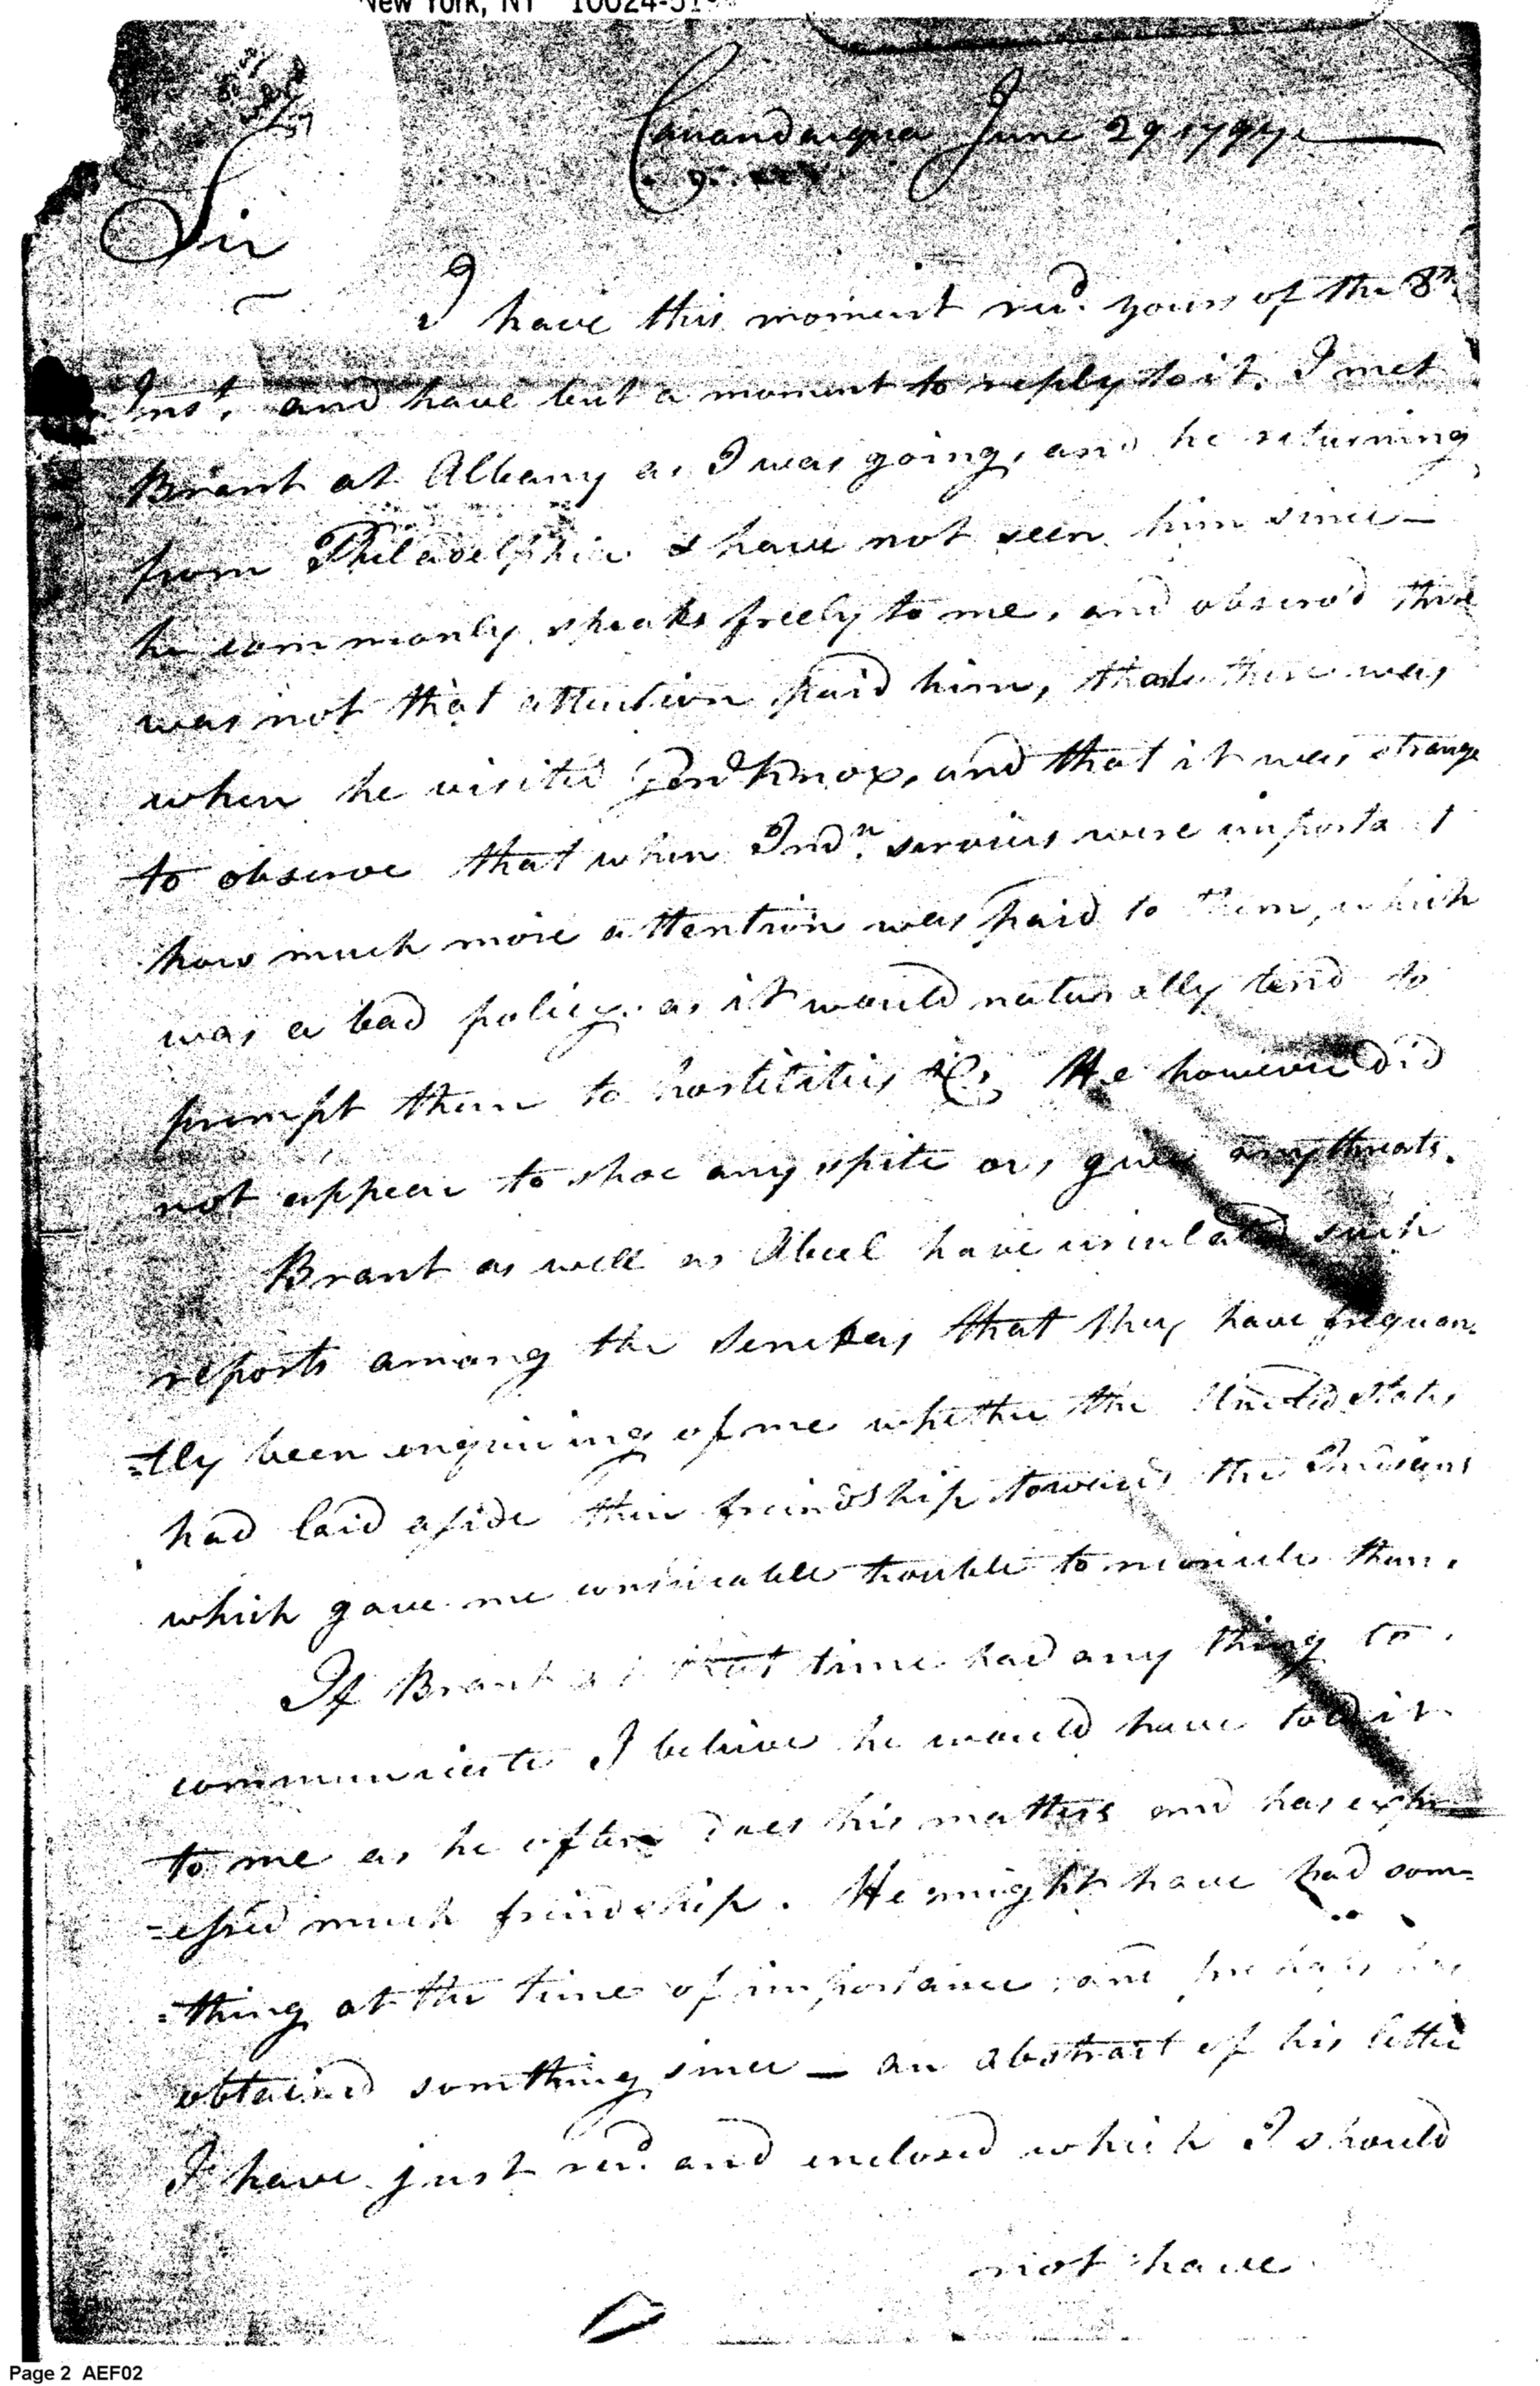 New York, NY 10024-51
Canandaigua June 29 1797
Sir
I have this moment recd. yours of the 8th
Inst, and have but a moment to reply to it. I met
Brant at Albany as I was going, and he returning
from Philadelphia I have not seen him since —
he commonly speaks freely to me, and observ'd there
was not that attention paid him, that there was
when he visited Genl Knox, and that it was strange
to observe that when Indn. services were important
how much more attention was paid to them, which
was a bad policy. as it would naturally tend to
prompt them to hostilities &C, He however did
not appear to shoe any spite or, give any threats.
Brant as well as Abeel have circulated such
reports among the Senekas that they have frequen-
=tly been enquiring of me whether the United States
had laid aside their freindship towards the Indians
which gave me considerable trouble to reconcile them.
If Brant at that time had any thing to
communicate I believe he would have told it
to me as he often does his matters and has expr
=essed much freindship. He might have had som=
=thing at the time of importance and perhaps has
obtained somthing since — an abstract of his letter
I have just recd. and enclosed which I should
not have
Page 2 AEF02